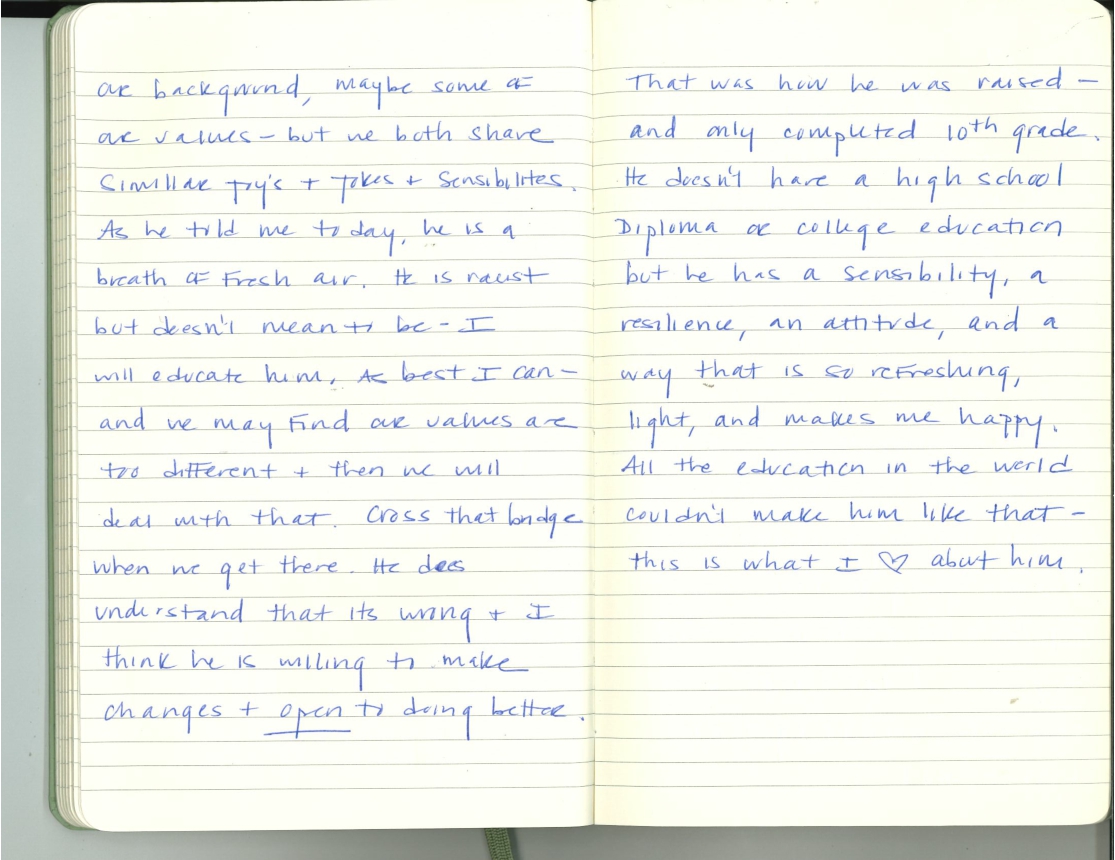 our background, maybe some of
our values – but we both share
Simillar joy's + jokes + Sensibilites.
As he told me today, he is a
breath of Fresh air. He is racist
but doesn't mean to be – I
will educate him, As best I can –
and we may Find our values are
too different + then we will
deal with that. Cross that bridge
when we get there. He does
understand that its wrong + I
think he is willing to make
changes + open to doing better.
That was how he was raised –
and only completed 10th grade.
He doesn't have a high school
Diploma or college education
but he has a sensibility, a
resilience, an attitude, and a
way that is so reFreshing,
light, and makes me happy.
All the education in the world
couldn't make him like that –
this is what I ♡ about him.